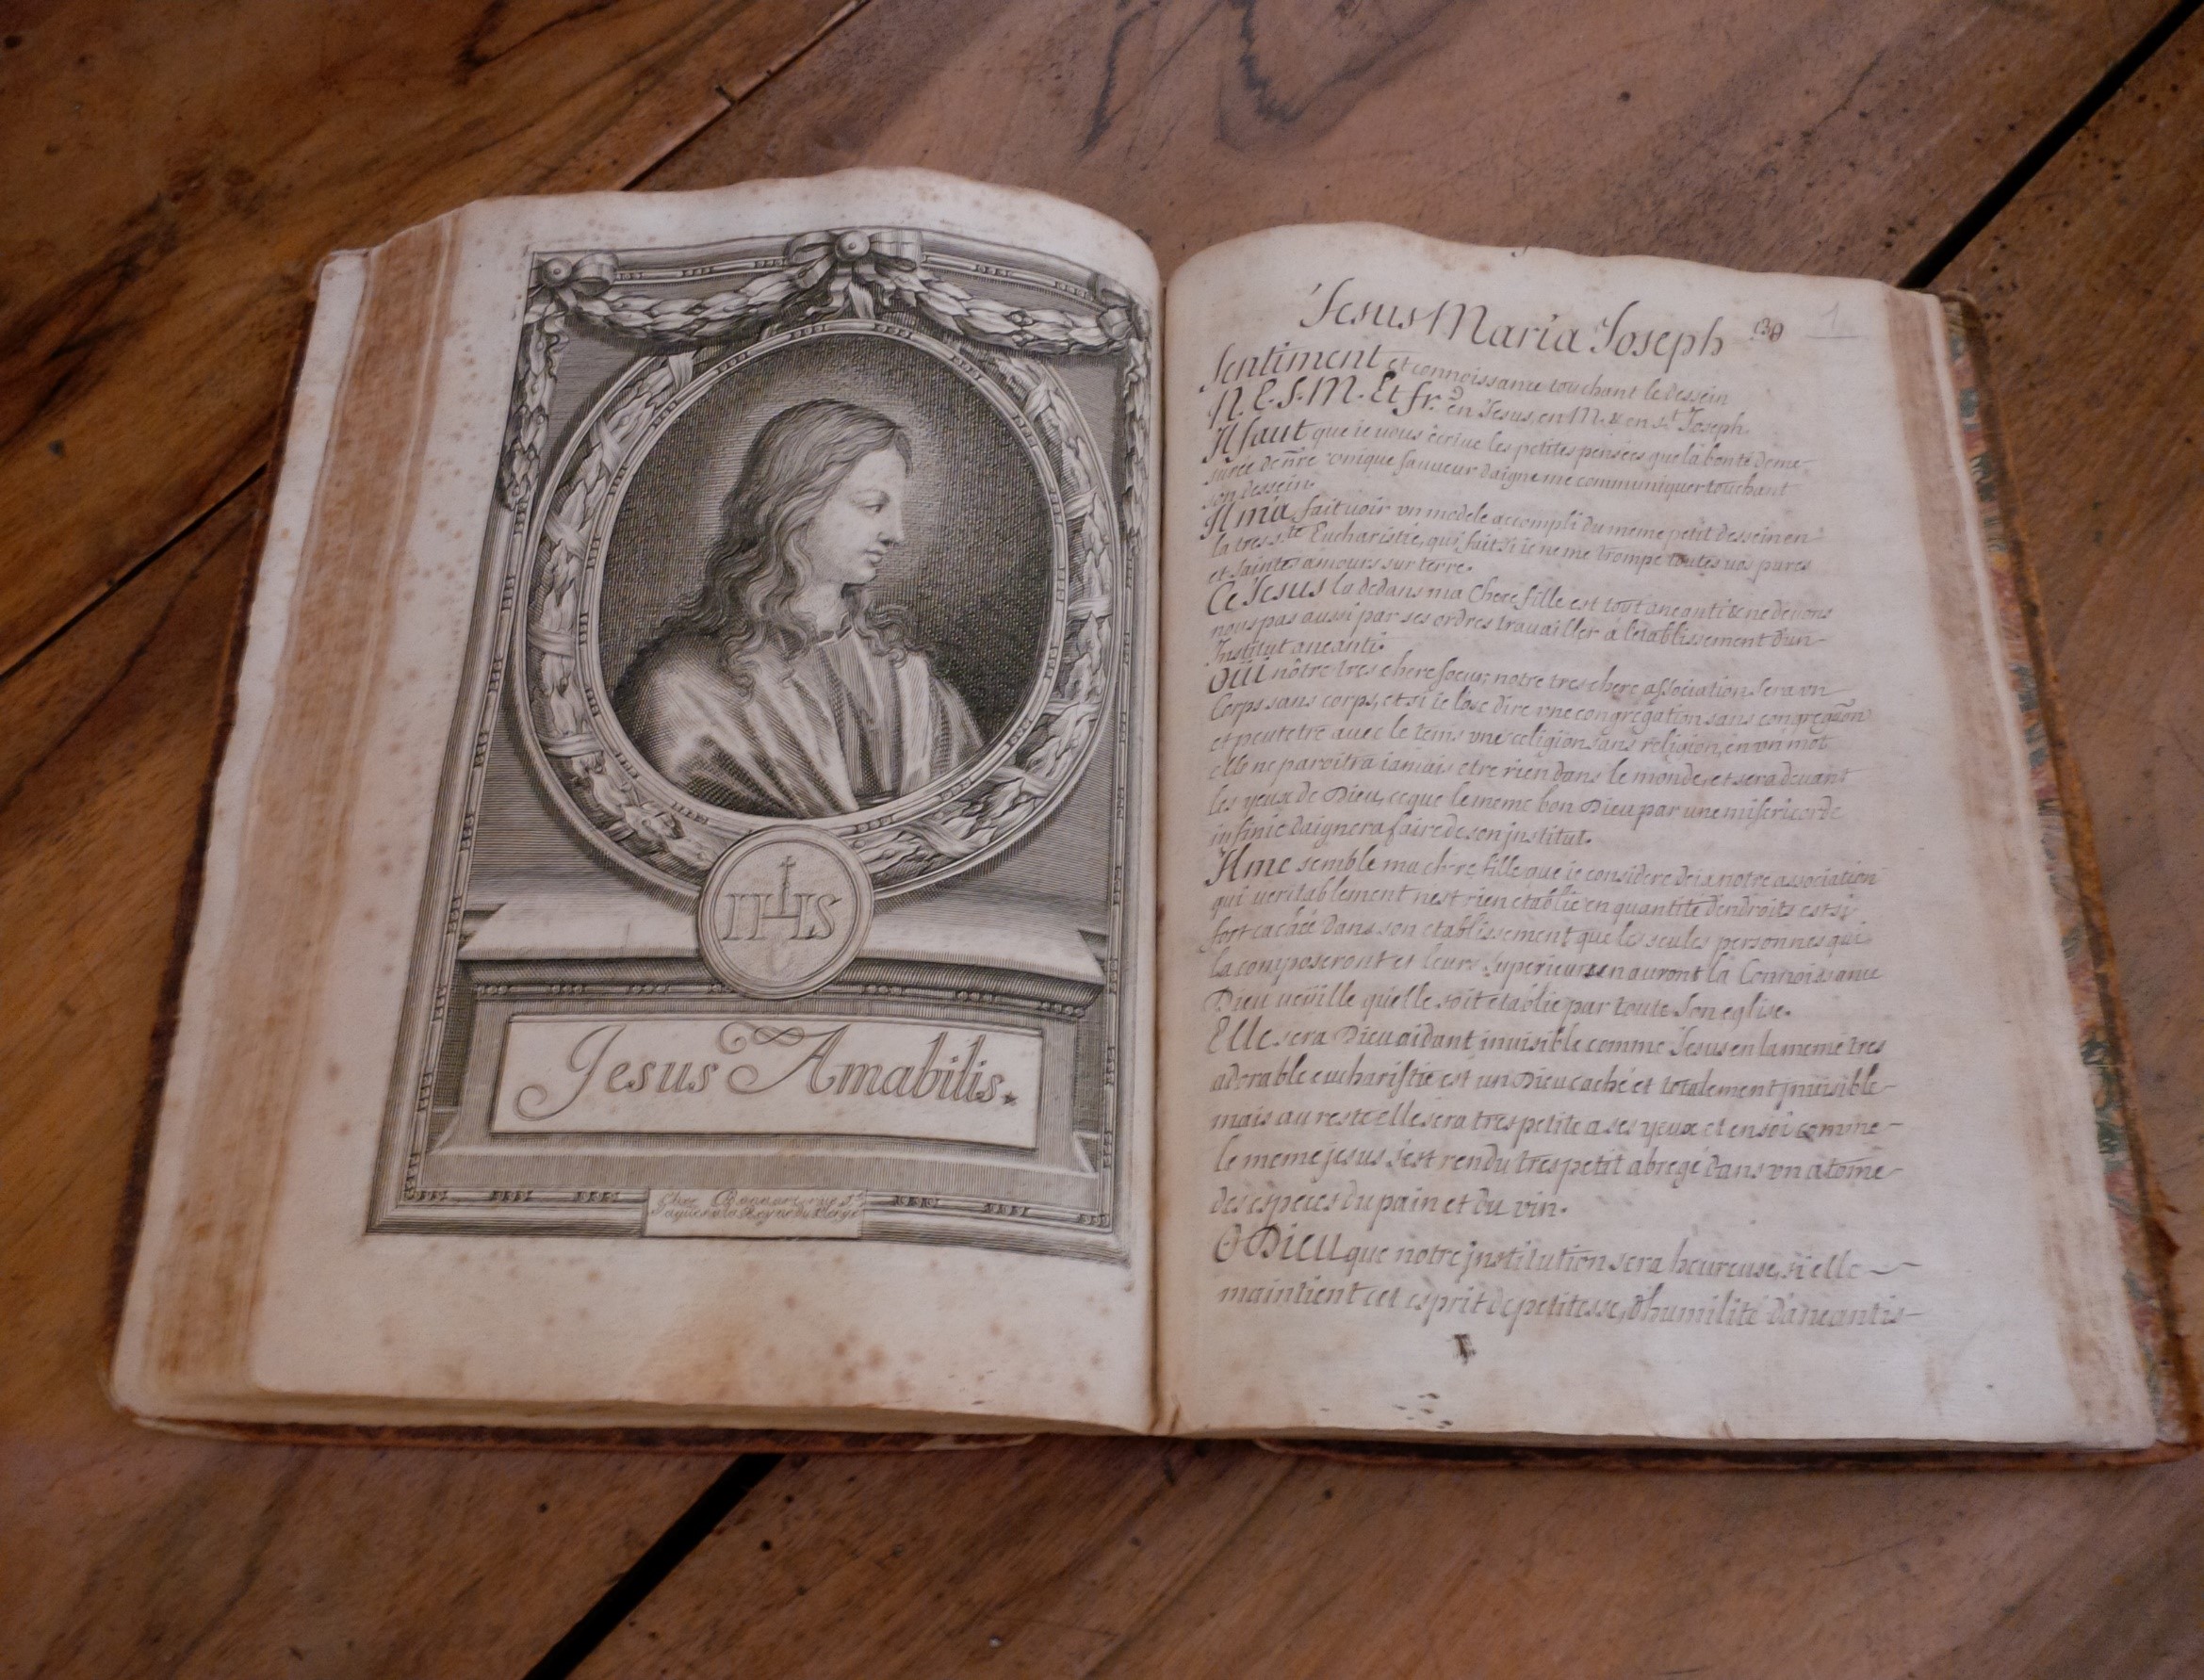 IHS
Jesus Amabilis.
Chez
Jaques a la
Jesus Maria Joseph
1
Sentiment et connoissance touchant le dessein
N. C. S. M. Et fr. en Jesus, en M. & en st Joseph.
Il faut que ie uous écriue les petites pensées que la bonté deme-
surée de nre vnique sauueur daigne me communiquer touchant
son dessein.
Il ma fait uoir vn modele accompli du meme petit dessein en
la tres ste Eucharistie, qui fait si ie ne me trompe toutes uos pures
et saintes amours sur terre.
Ce Jesus la dedans ma chere fille est tout aneanti & ne deuons
nous pas aussi par ses ordres trauailler a letablissement d'un
Institut aneanti.
Oüi nôtre tres chere soeur, notre tres chere association sera vn
Corps sans corps, et si ie lose dire vne congregation sans congregaõn
et peutetre auec le tems vne religion sans religion, en vn mot
elle ne paroitra iamais etre rien dans le monde, et sera deuant
les yeux de Dieu, ce que le meme bon Dieu par une misericorde
infinie daignera faire de son institut.
Il me semble ma chere fille que ie considere deia notre association
qui ueritablement nest rien etablie en quantité dendroits est si
fort cachée dans son etablissement que les seules personnes qui
la composeront et leurs superieurs en auront la Connoissance
Dieu ueüille quelle soit etablie par toute son eglise.
Elle sera Dieu aidant inuisible comme Jesus en la meme tres
adorable eucharistie est un Dieu caché et totalement inuisible
mais au reste elle sera tres petite a ses yeux et en soi comme
le meme jesus s'est rendu tres petit abregé dans vn atome
des especes du pain et du vin.
O Dieu que notre institution sera heureuse, si elle
maintient cet esprit de petitesse, d'humilité d'aneantis-